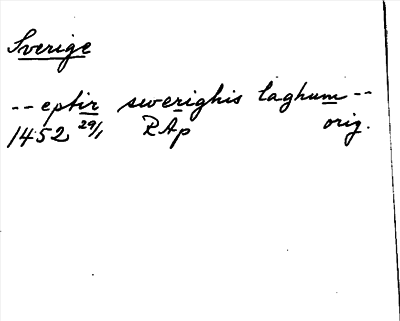 Sverige
-- eptir swerighis laghum --
1452 29/1 RAp orig.